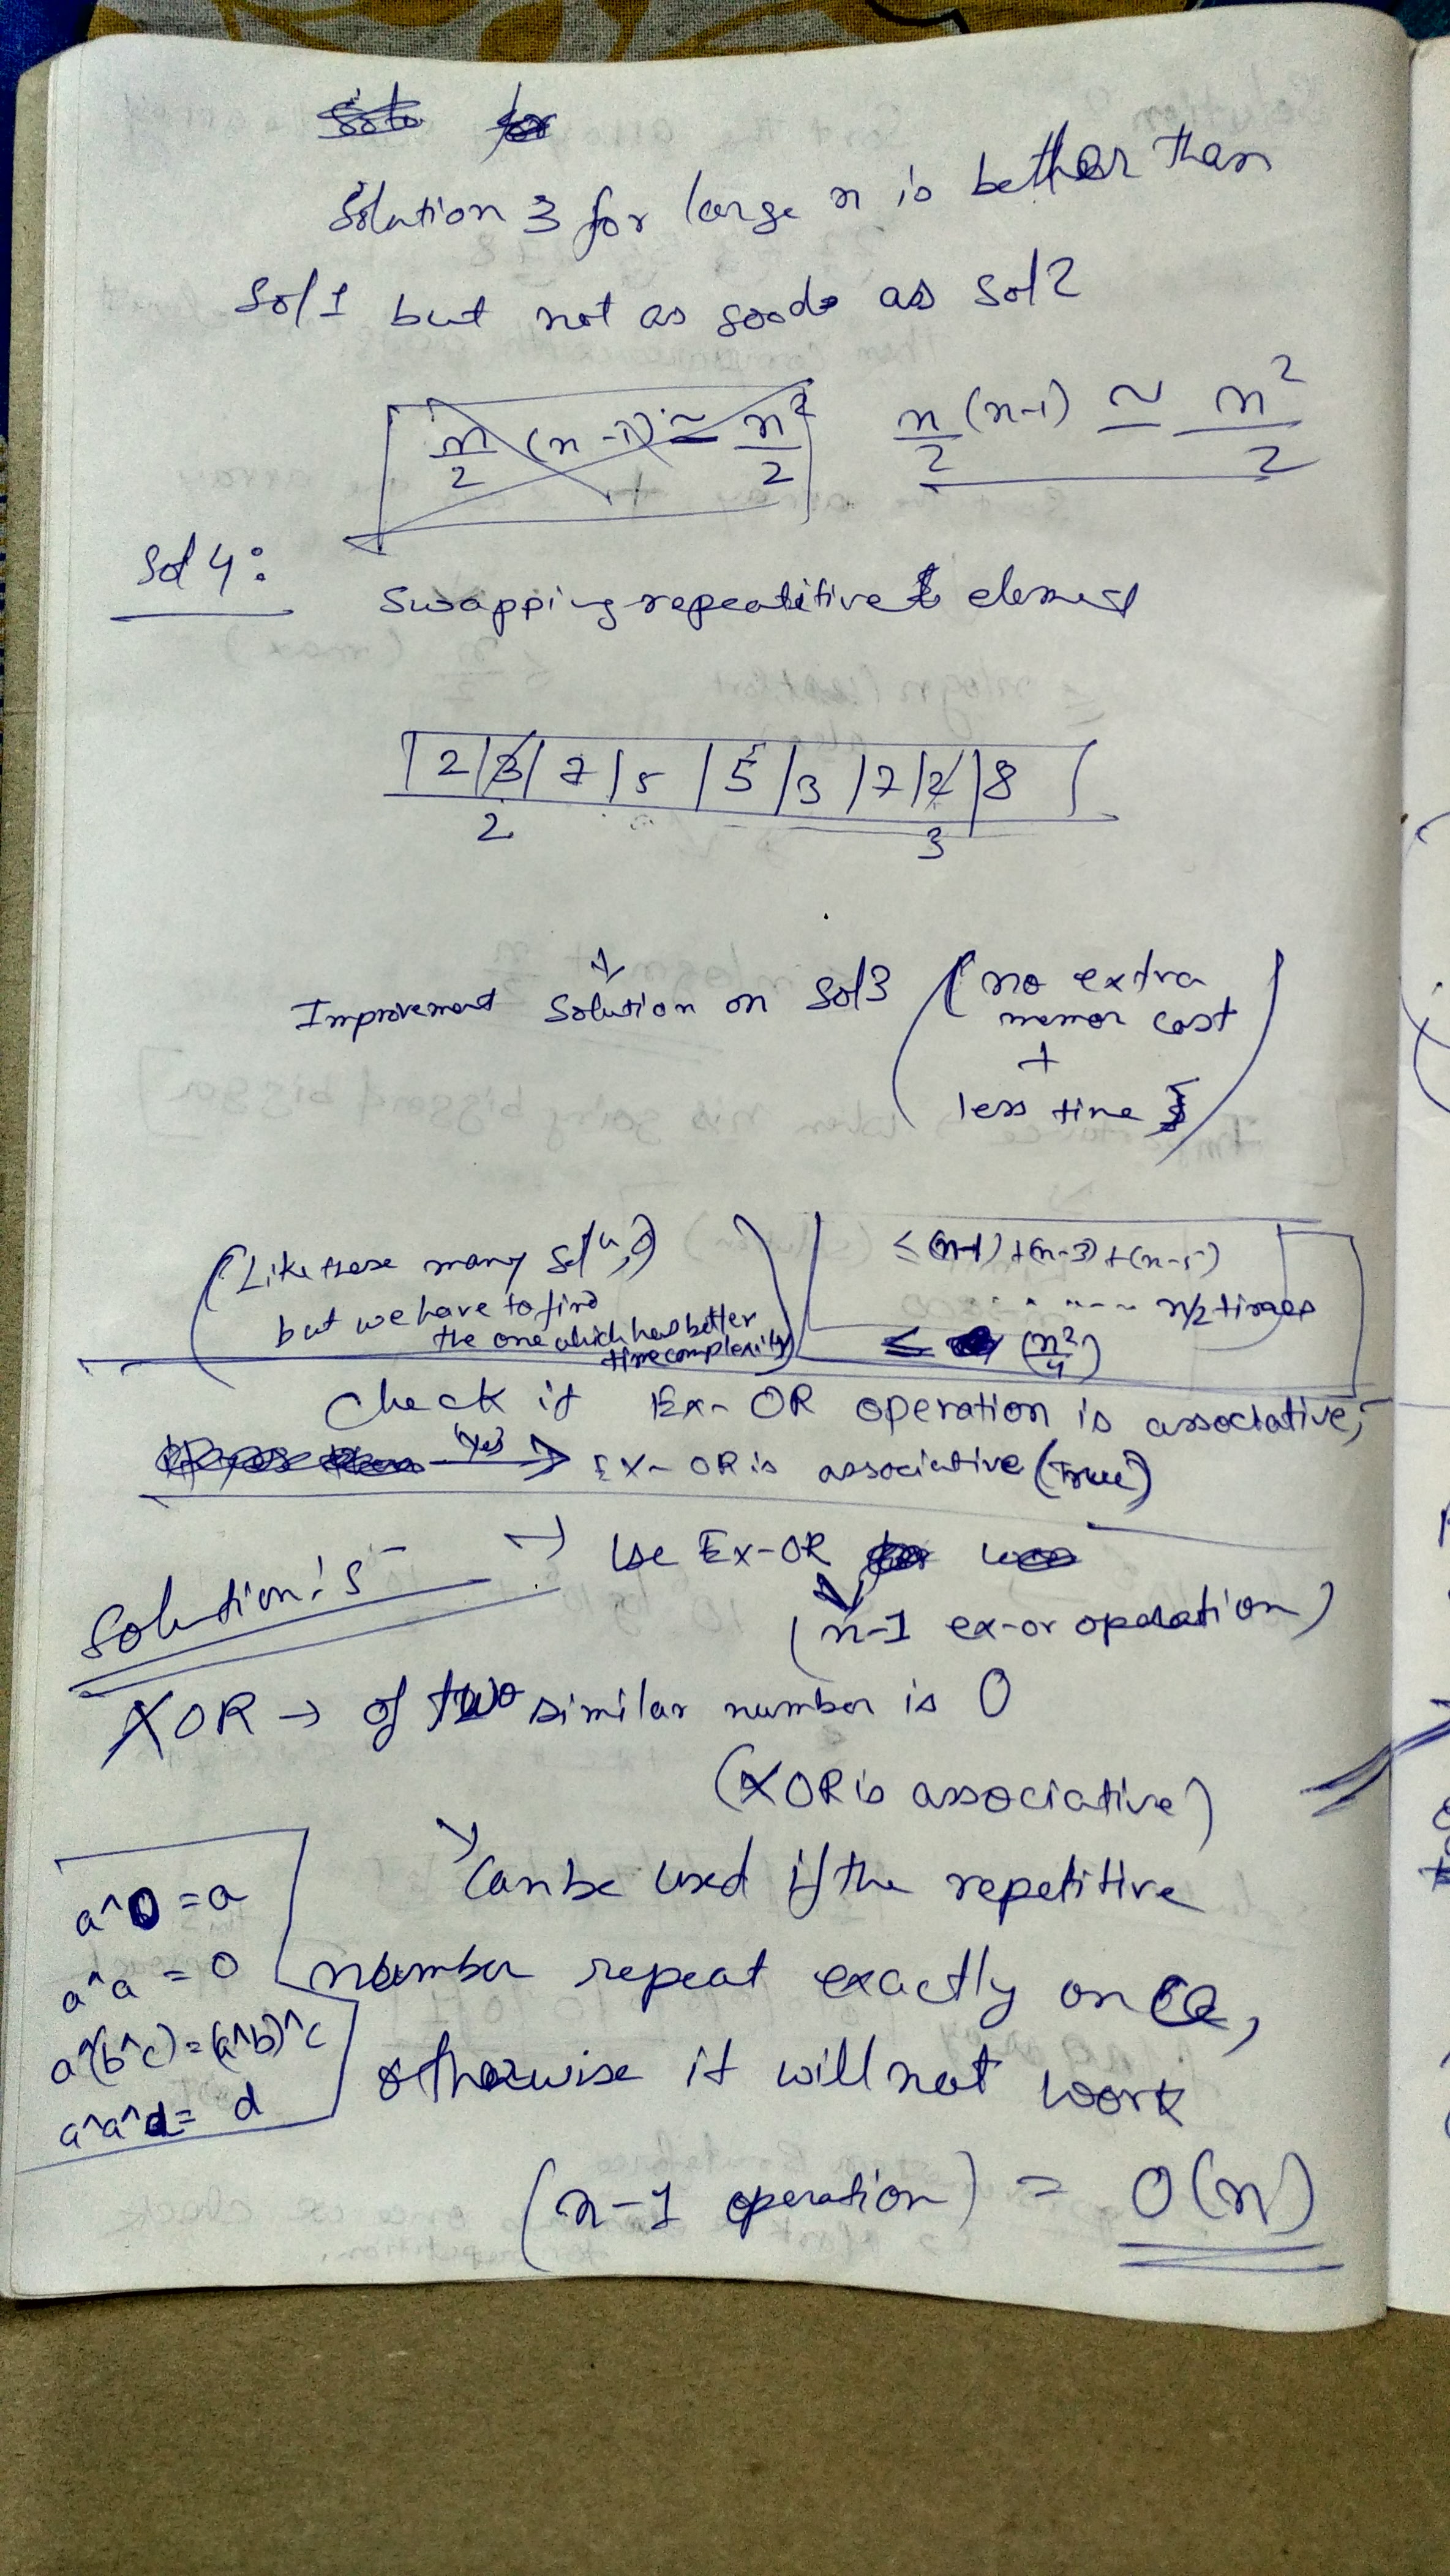 Solution 3 for large n is better than
Sol 1 but not as good as Sol 2
n/2 (n-1) ≃ n²/2
n/2 (n-1) ≃ n²/2
Sol 4:
Swapping repeatitive element
2 | 3 | 7 | 5 | 5 | 3 | 7 | 2 | 8
2 3
Improvement Solution on Sol 3 (no extra
memor cost
+
less time)
(Like these many Solⁿ,
but we have to find
the one which has better
time complexity)
≤ (n-1) + (n-3) + (n-5)
..... n/2 times
≤ (n²/4)
Check if Ex-OR operation is associative,
(Yes) → EX-OR is associative (True)
Solution: 5 → Use EX-OR
(n-1 ex-or operation)
XOR → of two similar number is 0
(XOR is associative)
Can be used if the repetitive
number repeat exactly once,
otherwise it will not work
a^0 = a
a^a = 0
a^(b^c) = (a^b)^c
a^a^d = d
(n-1 operation) = O(n)